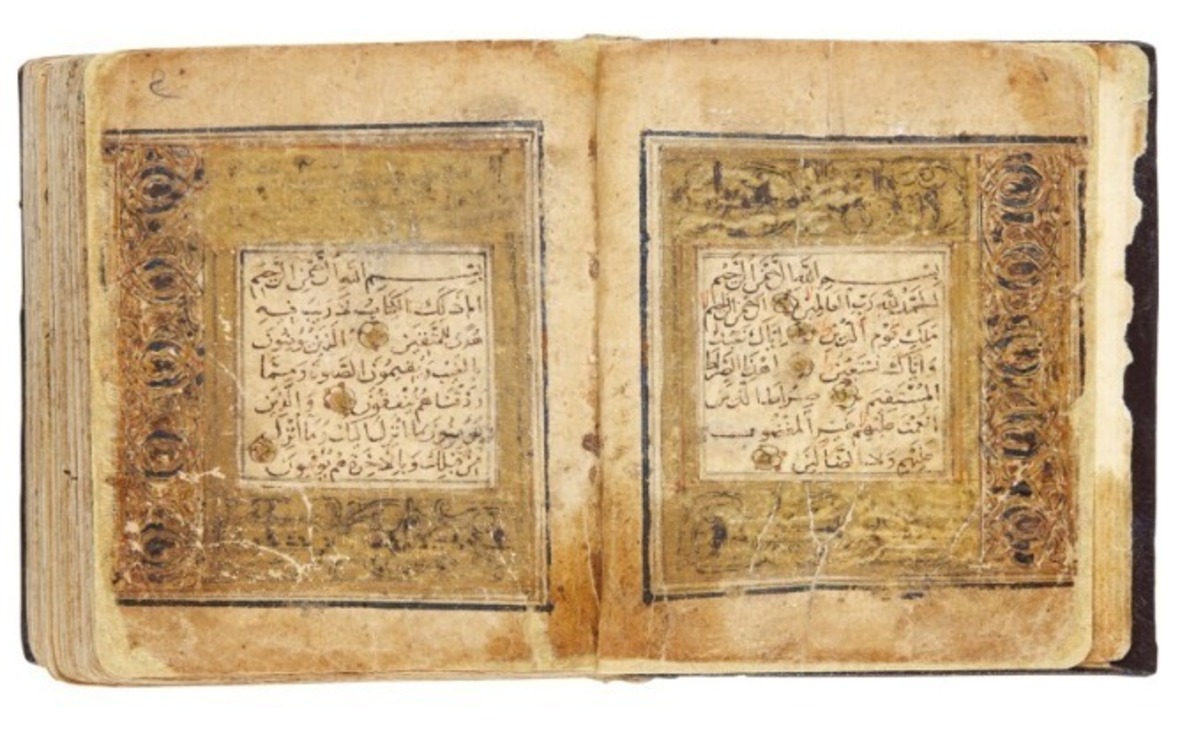 بسم الله الرحمن الرحيم
الحمد لله رب العالمين الرحمن الرحيم
ملك يوم الدين اياك نعبد
واياك نستعين اهدنا الصراط
المستقيم صراط الذين
انعمت عليهم غير المغضوب
عليهم ولا الضالين
بسم الله الرحمن الرحيم
الم ذلك الكتاب لا ريب فيه
هدى للمتقين الذين يؤمنون
بالغيب ويقيمون الصلوة ومما
رزقناهم ينفقون والذين
يؤمنون بما انزل اليك وما انزل
من قبلك وبالاخرة هم يوقنون